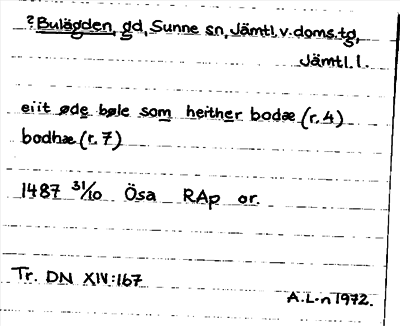 ?Bulägden, gd, Sunne sn, Jämtl. v. doms. tg,
Jämtl. l.
eiit øde bøle som heither bodæ (r. 4)
bodhæ (r. 7)
1487 31/10 Ösa RAp or.
Tr. DN XIV:167
A.L-n 1972.